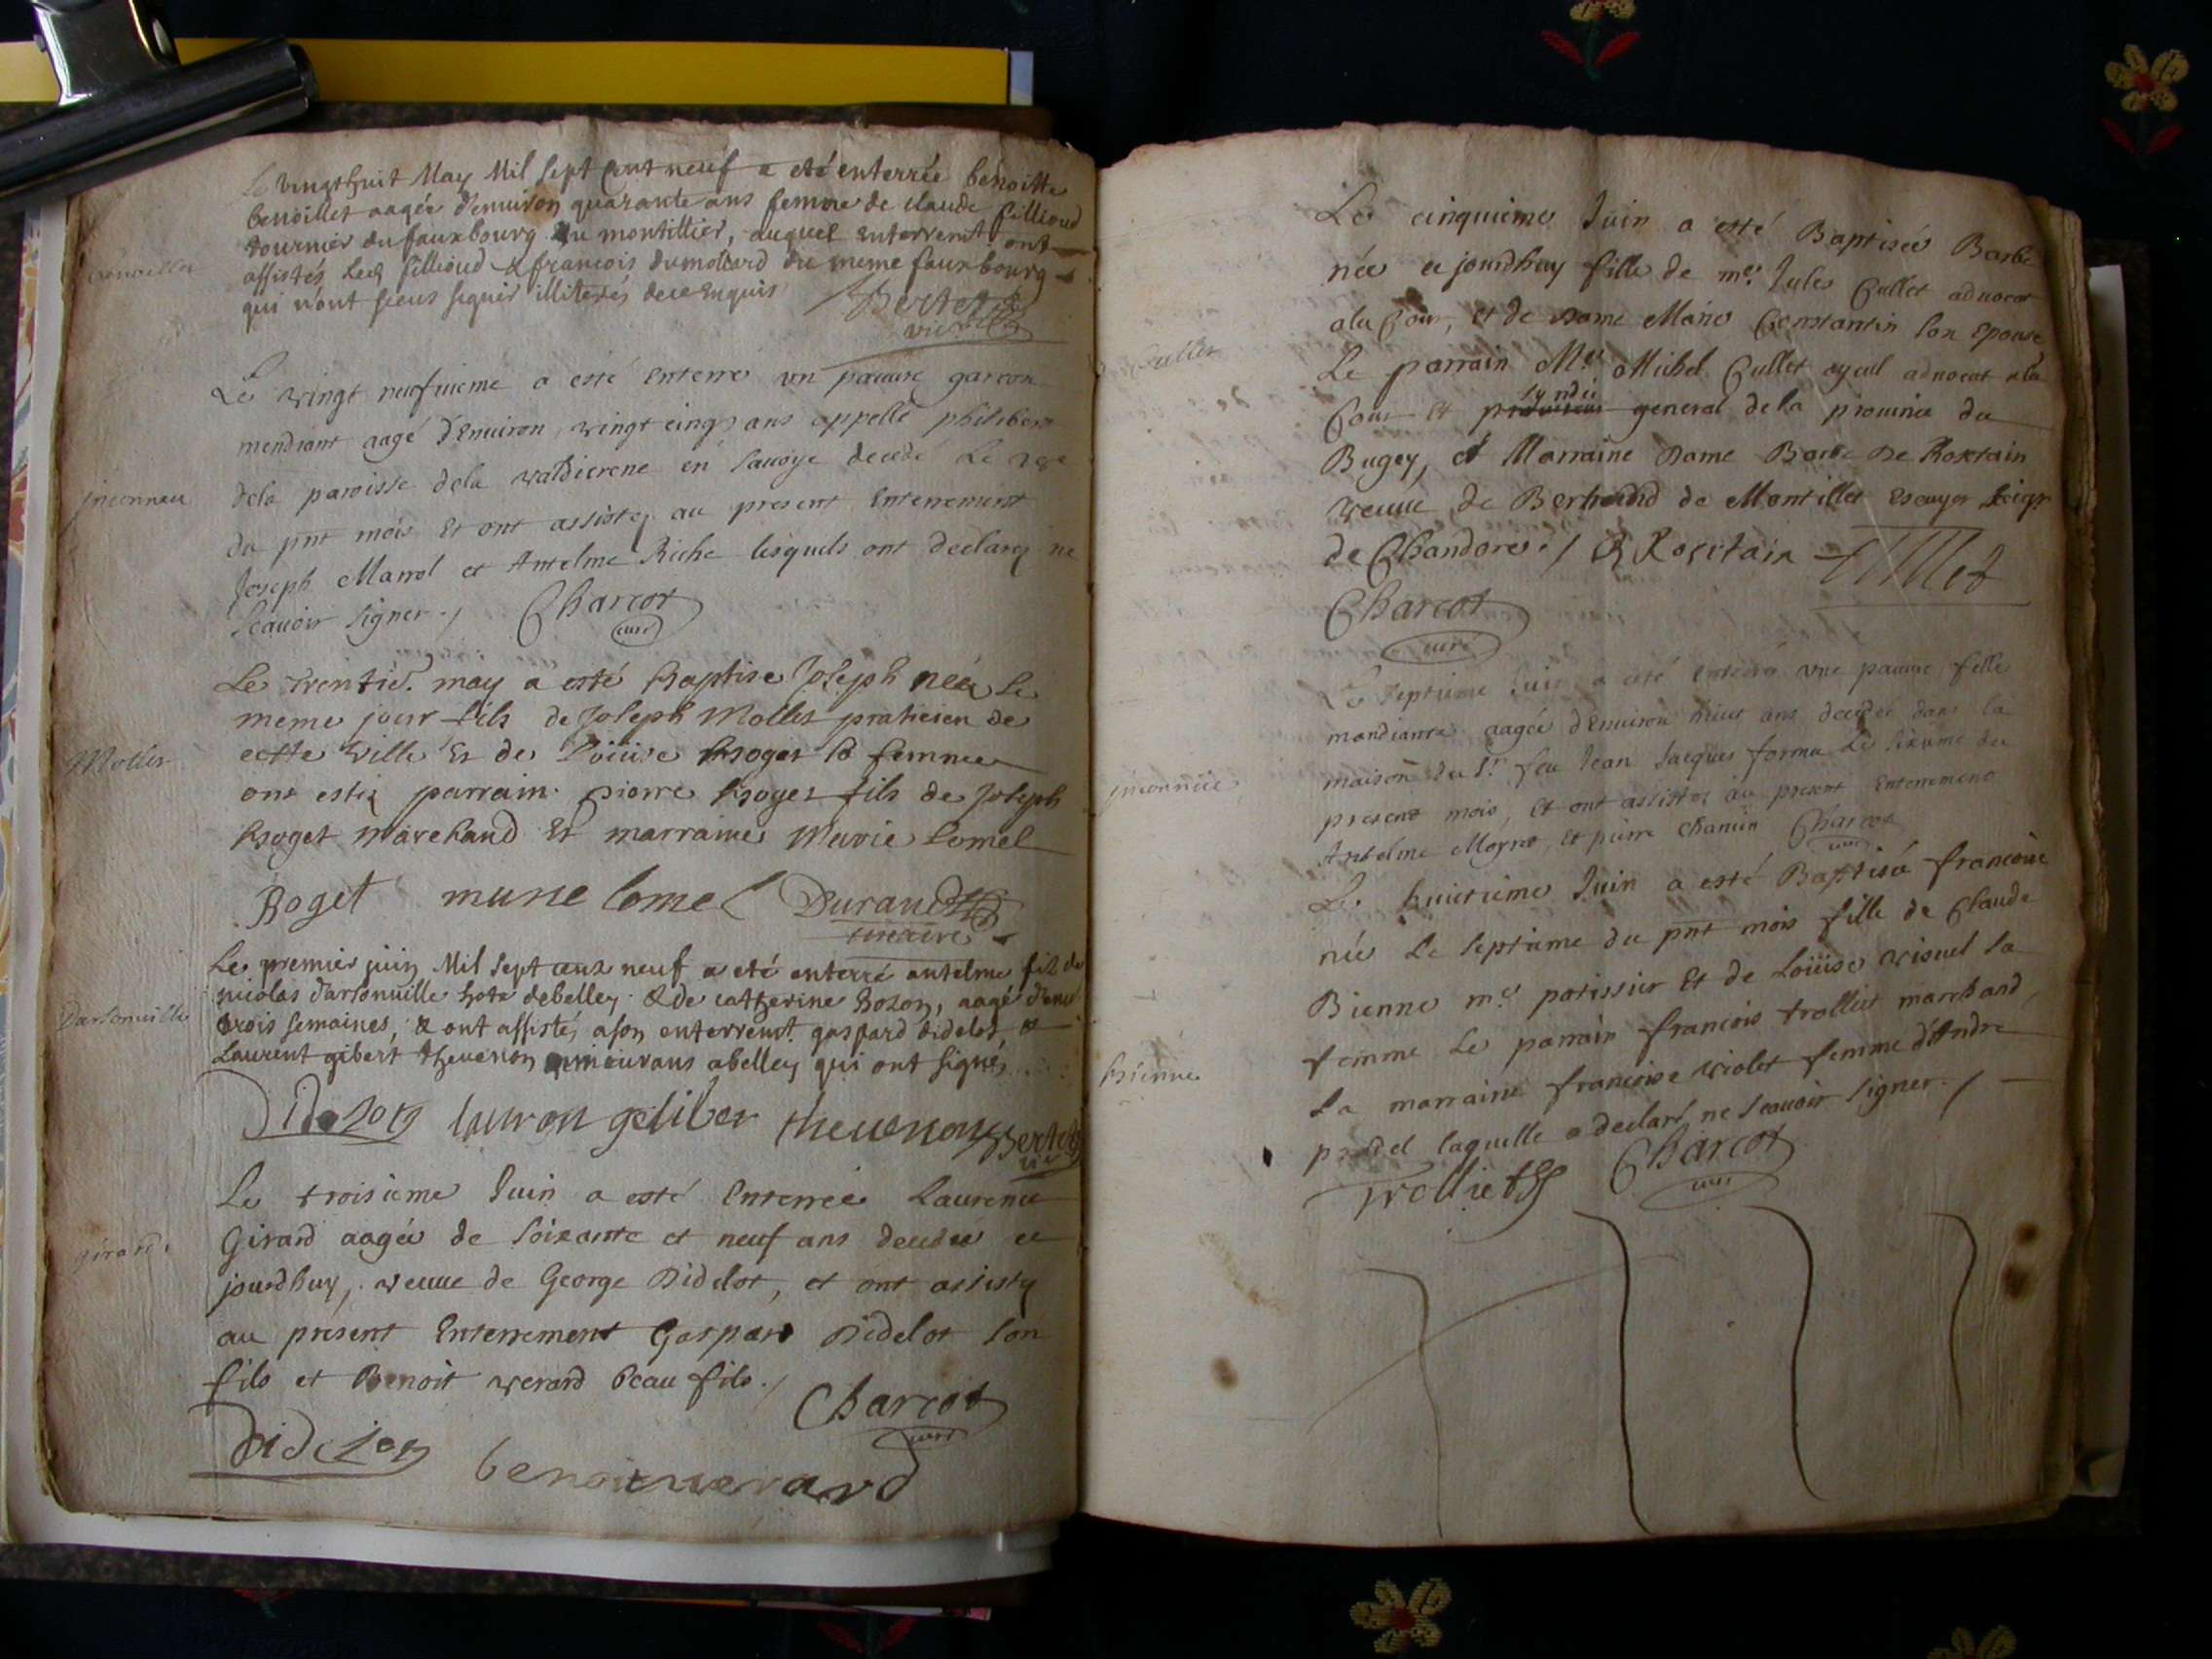 Le vingthuit May Mil sept cent neuf a eté enterrée benoitte
benoillet aagée d'environ quarante ans femme de claude fillioud
tournier du fauxbourg du montillier, auquel enterremt ont
assistés led. fillioud & francois dumollard du meme fauxbourg
qui n'ont sceus signer illiterés de ce enquis
Bertet
vic.
Le vingt neufuieme a esté Enterré vn pauure garcon
mendiant aagé d'Enuiron vingt cinq ans appellé philibert
dela paroisse dela valdierene en sauoye decedé Le
du pnt mois Et ont assisté au present Enterrement
Joseph Marrol et Antelme Riche lesquels ont declaré ne
scauoir signer ./ Charcot
curé
jnconneu
Le trentie. may a esté Baptise Joseph née le
meme jour fils de Joseph Mollet praticien de
cette ville Et de Loüise Roget sa femme
ont estés parrain pierre Roget fils de Joseph
Roget Marchand Et marraine Marie Lomel
Mollet
Roget marie lomel Durand
vicaire
Le premier juin Mil sept cent neuf a eté enterré antelme fils de
nicolas d'arsonuille hote de belley & de catherine Bozon, aagé d'enui
trois semaines, & ont assistés a son enterremt. gaspard didelot, &
Laurent gibert theuenon demeurans a belley qui ont signés
Darsonuille
Didelot lauron geliber theuenon Bertet
vic
Le troisieme Juin a esté Enterrée Laurence
Girard aagée de soixante et neuf ans decedée ce
jourdhuy, veuue de George Didelot, et ont assisté
au present Enterrement Gaspard Didelot son
fils et Benoit verard beau fils ./
girard
Charcot
curé
Didelot
benoit verard
Le cinquieme Juin a esté Baptisée Barbe
née ce jourdhuy fille de me. Jules Cullet aduocat
a la Cour, et de Dame Marie Constantin son Epouse
Le parrain Me. Michel Cullet ayeul aduocat a la
syndic
Cour Et general dela prouince du
Bugey, et Marraine Dame Barbe De Rostain
veuue de Bertrand de Montillet Escuyer seigr
de Chandore ./ B Rostain Cullet
Cullet
Charcot
curé
Le septieme Juin a esté Enterré vne pauure fille
mandiante aagée d'Enuiron ans decedée dans la
maison du Sr. feu Jean Jacques forma Le sixieme du
present mois, Et ont assistés au present Enterrement
Antelme Moyne, Et pierre Chamin Charcot
curé
jnconnüe
Le huictieme Juin a esté Baptisée francoise
née Le septieme du pnt mois fille de Claude
Bienne me. patissier Et de Loüise visuel sa
femme Le parrain francois trolliet marchand,
La marraine francoise violet femme d'Andre
pradel laquelle a declaré ne scauoir signer ./
Bienne
Trolliet Charcot
curé